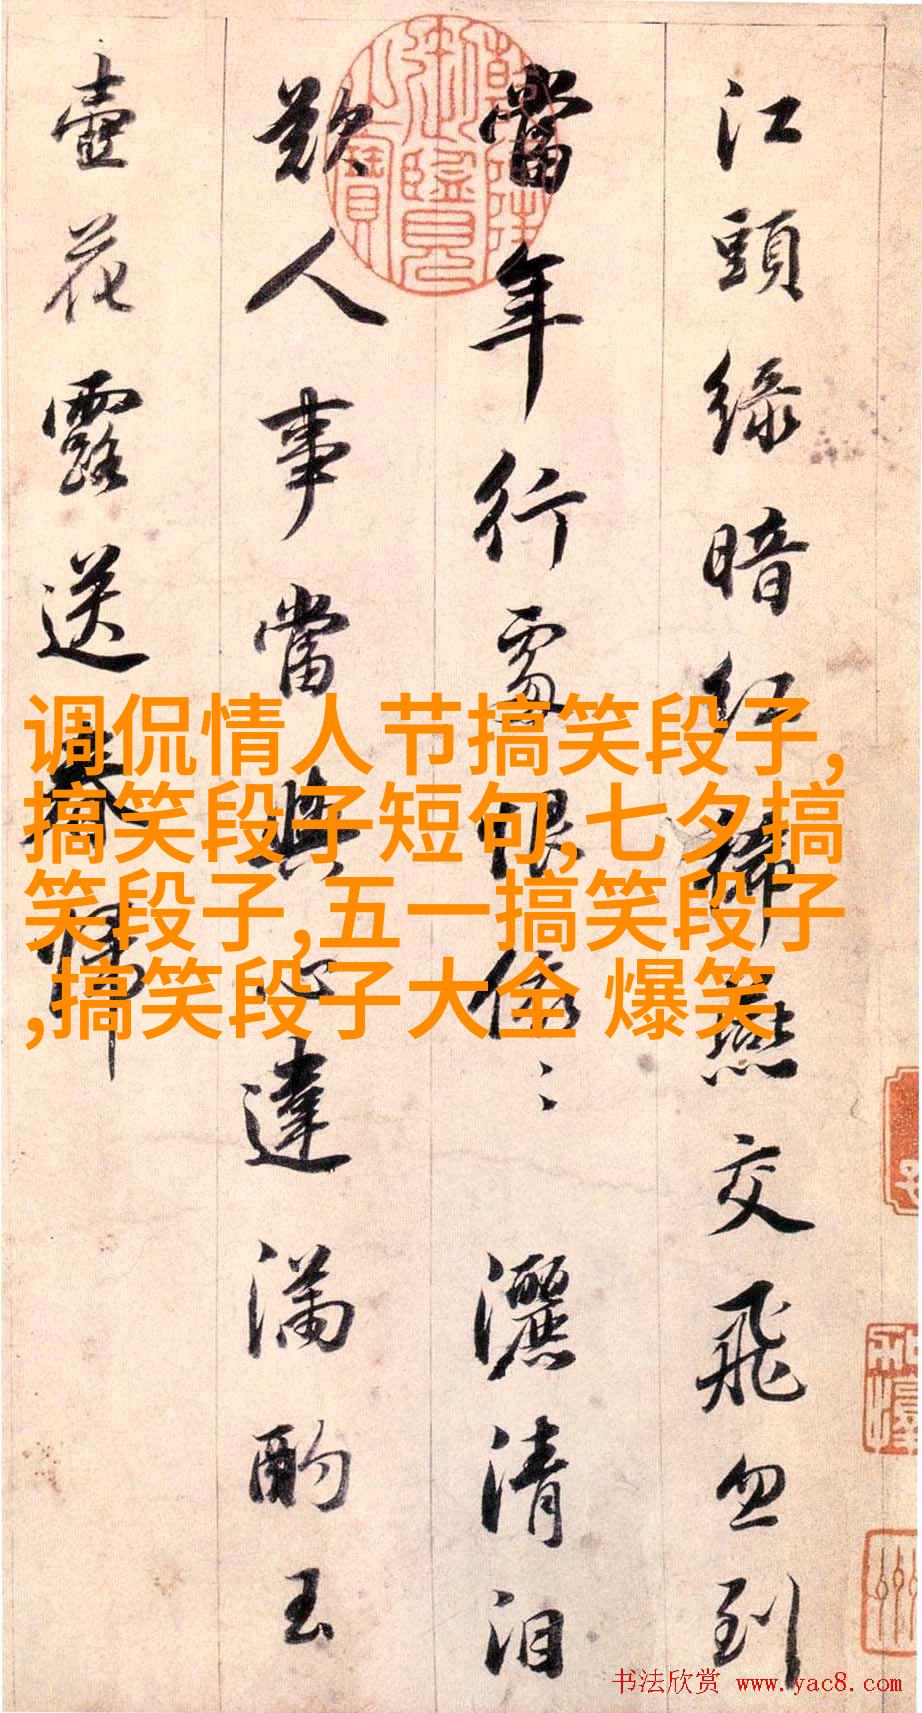 江頭緑暗紅稀燕交飛忽到
當年行處恨依〻灑清泪
歎人事當與心違滿酌玉
壺花露送春歸
乾隆御覽之寶
调侃情人节搞笑段子,
搞笑段子短句,七夕搞
笑段子,五一搞笑段子
,搞笑段子大全 爆笑
书法欣赏 www.yac8.com